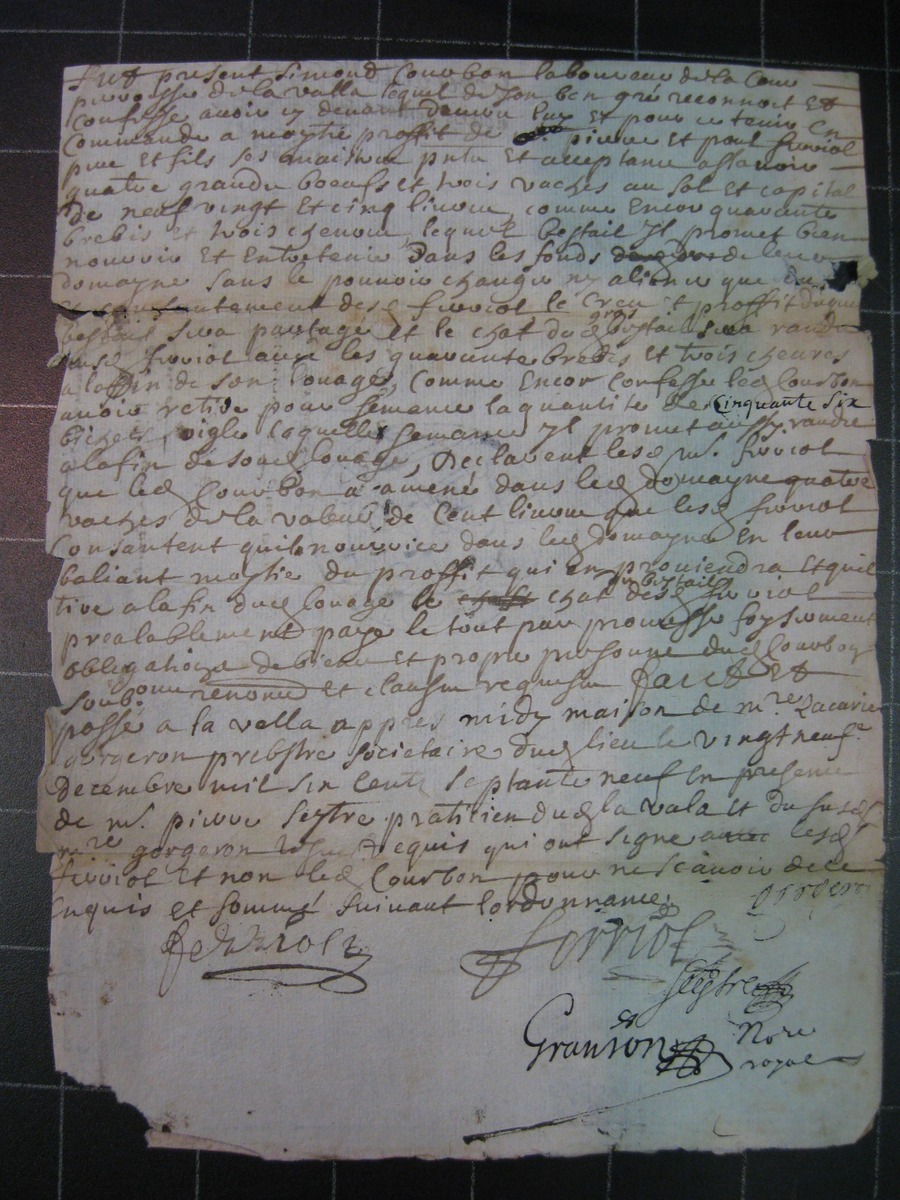 Fust present Simond Courbon laboureur de la Cour
parroisse de la valla lequel de son bon gré reconnoit Et
Confesse avoir cy devant devin luy Et pour ce tenir En
Commande a moytie proffit de pierre et paul fuvriol
pere Et fils ses maistres pntz Et acceptant assavoir
quatre grandz boeufs et trois vaches au sol et capital
de neuf vingt Et cinq livres, comme Encor quarante
brebis et trois chevres, lequel bestail Il promet bien
nourrir Et Entretenir Dans les fonds de leur
domayne sans le pouvoir changer ny aliener que du
consantement desd furriol le Creu Et proffit duquel
bestail sera partage et le chat dud gros bestail sera randu
ausd furriol avec les quarante brebis Et trois chevres
a la fin de son louage, Comme Encor Confesse led Courbon
avoir retire pour semance la quantite de Cinquante Six
bichets seigle laquelle semance Il promet aussy randre
a la fin de sond louage, Declarent lesd mrs. furriol
que led Courbon a amené dans led domayne quatre
vaches de la valeur de Cent livres que lesd furriol
Consantent quil nourrice dans led domayne En leur
baliant moytie du proffit qui en proviendra Et quil
tire a la fin dud louage le chat du bestail desd furriol
prealablement paye le tout par promesse foy serment
obligation de biens Et propre personne dud Courbon
soubz renond et clauses requises faict Et
passé a la vella appres midy maison de mre. Zacarie
gorgeron prebstre societaire dud lieu le vingt neufe
decembre mil six centz septante neuf En presence
de mr. pierre Seytre pratitien dud la vala Et du susd
mre gorgeron requis qui ont signe avec lesd
furriol Et non led Courbon pour ne scavoir de ce
Enquis et sommé suivant lordonnance.
Ferriol
Forriol
Seytre
Granson
Nore
royal